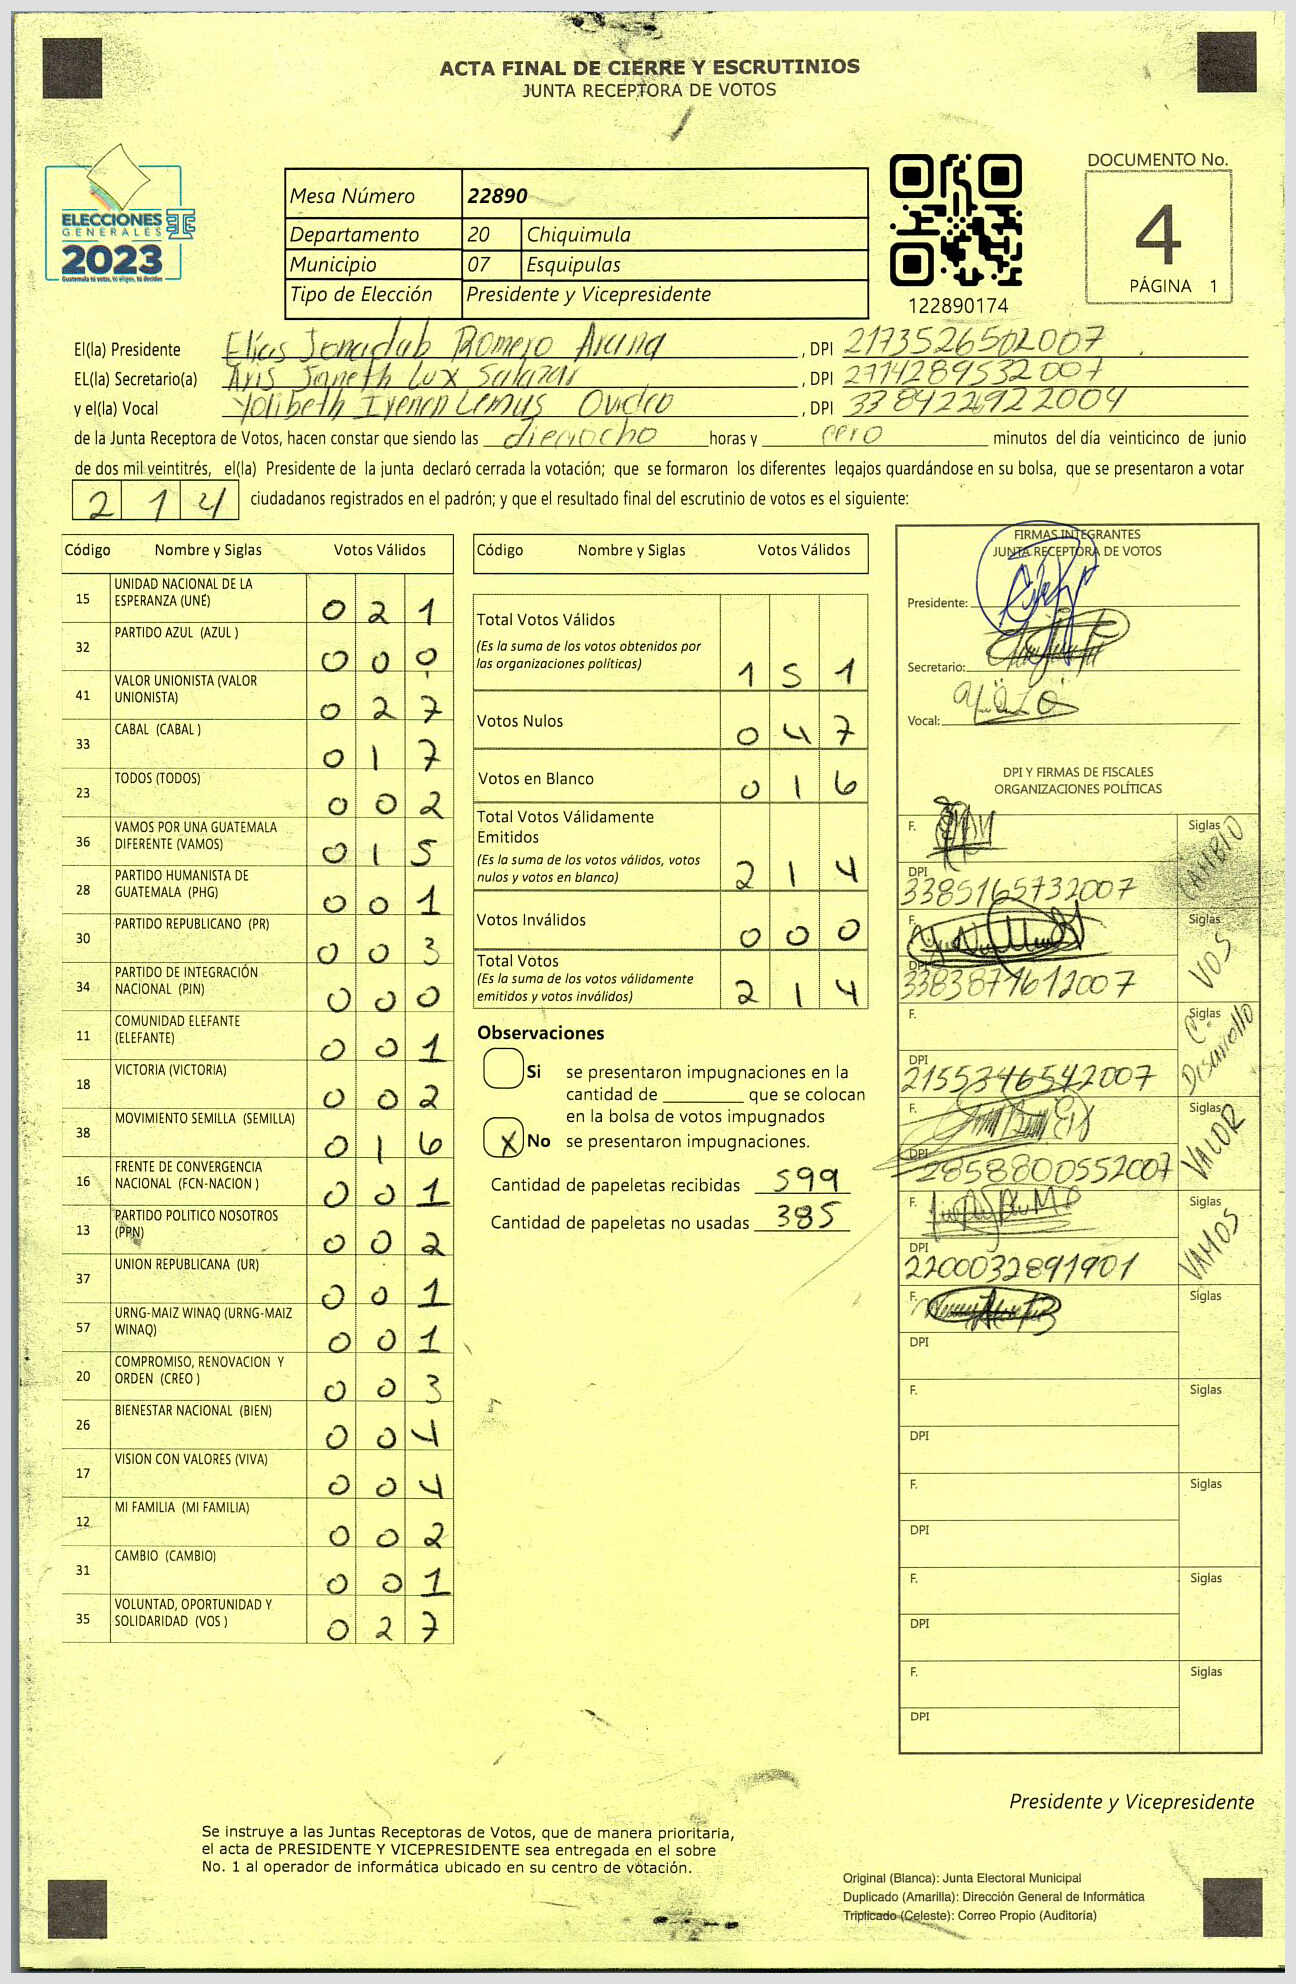 ACTA FINAL DE CIERRE Y ESCRUTINIOS
JUNTA RECEPTORA DE VOTOS
ELECCIONES
GENERALES
2023
Guatemala tú votas, tú eliges, tú decides
Mesa Número 22890
Departamento 20 Chiquimula
Municipio 07 Esquipulas
Tipo de Elección Presidente y Vicepresidente
122890174
DOCUMENTO No.
4
PÁGINA 1
El(la) Presidente Elías Jonadab Romero Arana, DPI 2173526502007
EL(la) Secretario(a) Aris Janeth Lux Salazar, DPI 2714289532007
y el(la) Vocal Yolibeth Lemus Oviedo, DPI 3384226922004
de la Junta Receptora de Votos, hacen constar que siendo las dieciocho horas y cero minutos del día veinticinco de junio
de dos mil veintitrés, el(la) Presidente de la junta declaró cerrada la votación; que se formaron los diferentes legajos guardándose en su bolsa, que se presentaron a votar
214 ciudadanos registrados en el padrón; y que el resultado final del escrutinio de votos es el siguiente:
Código Nombre y Siglas Votos Válidos
15 UNIDAD NACIONAL DE LA ESPERANZA (UNE) 0 2 1
32 PARTIDO AZUL (AZUL ) 0 0 0
41 VALOR UNIONISTA (VALOR UNIONISTA) 0 2 7
33 CABAL (CABAL ) 0 1 7
23 TODOS (TODOS) 0 0 2
36 VAMOS POR UNA GUATEMALA DIFERENTE (VAMOS) 0 1 5
28 PARTIDO HUMANISTA DE GUATEMALA (PHG) 0 0 1
30 PARTIDO REPUBLICANO (PR) 0 0 3
34 PARTIDO DE INTEGRACIÓN NACIONAL (PIN) 0 0 0
11 COMUNIDAD ELEFANTE (ELEFANTE) 0 0 1
18 VICTORIA (VICTORIA) 0 0 2
38 MOVIMIENTO SEMILLA (SEMILLA) 0 1 6
16 FRENTE DE CONVERGENCIA NACIONAL (FCN-NACION ) 0 0 1
13 PARTIDO POLITICO NOSOTROS (PPN) 0 0 2
37 UNION REPUBLICANA (UR) 0 0 1
57 URNG-MAIZ WINAQ (URNG-MAIZ WINAQ) 0 0 1
20 COMPROMISO, RENOVACION Y ORDEN (CREO ) 0 0 3
26 BIENESTAR NACIONAL (BIEN) 0 0 4
17 VISION CON VALORES (VIVA) 0 0 4
12 MI FAMILIA (MI FAMILIA) 0 0 2
31 CAMBIO (CAMBIO) 0 0 1
35 VOLUNTAD, OPORTUNIDAD Y SOLIDARIDAD (VOS ) 0 2 7
Código Nombre y Siglas Votos Válidos
Total Votos Válidos 1 5 1
(Es la suma de los votos obtenidos por
las organizaciones políticas)
Votos Nulos 0 4 7
Votos en Blanco 0 1 6
Total Votos Válidamente
Emitidos
(Es la suma de los votos válidos, votos
nulos y votos en blanco) 2 1 4
Votos Inválidos 0 0 0
Total Votos
(Es la suma de los votos válidamente
emitidos y votos inválidos) 2 1 4
Observaciones
Si se presentaron impugnaciones en la
cantidad de ______ que se colocan
en la bolsa de votos impugnados
X No se presentaron impugnaciones.
Cantidad de papeletas recibidas 599
Cantidad de papeletas no usadas 385
FIRMAS INTEGRANTES
JUNTA RECEPTORA DE VOTOS
Presidente:
Secretario:
Vocal:
DPI Y FIRMAS DE FISCALES
ORGANIZACIONES POLÍTICAS
F. Siglas CAMBIO
DPI 3385165732007
F. Siglas VOS
DPI 3383871612007
F. Siglas C. Disarrollo
DPI 2155346542007
F. Siglas VALOR
DPI 2858800552007
F. Siglas VAMOS
DPI 2200032891901
F. Siglas
DPI
F. Siglas
DPI
F. Siglas
DPI
F. Siglas
DPI
F. Siglas
DPI
Presidente y Vicepresidente
Se instruye a las Juntas Receptoras de Votos, que de manera prioritaria,
el acta de PRESIDENTE Y VICEPRESIDENTE sea entregada en el sobre
No. 1 al operador de informática ubicado en su centro de votación.
Original (Blanca): Junta Electoral Municipal
Duplicado (Amarilla): Dirección General de Informática
Triplicado (Celeste): Correo Propio (Auditoría)